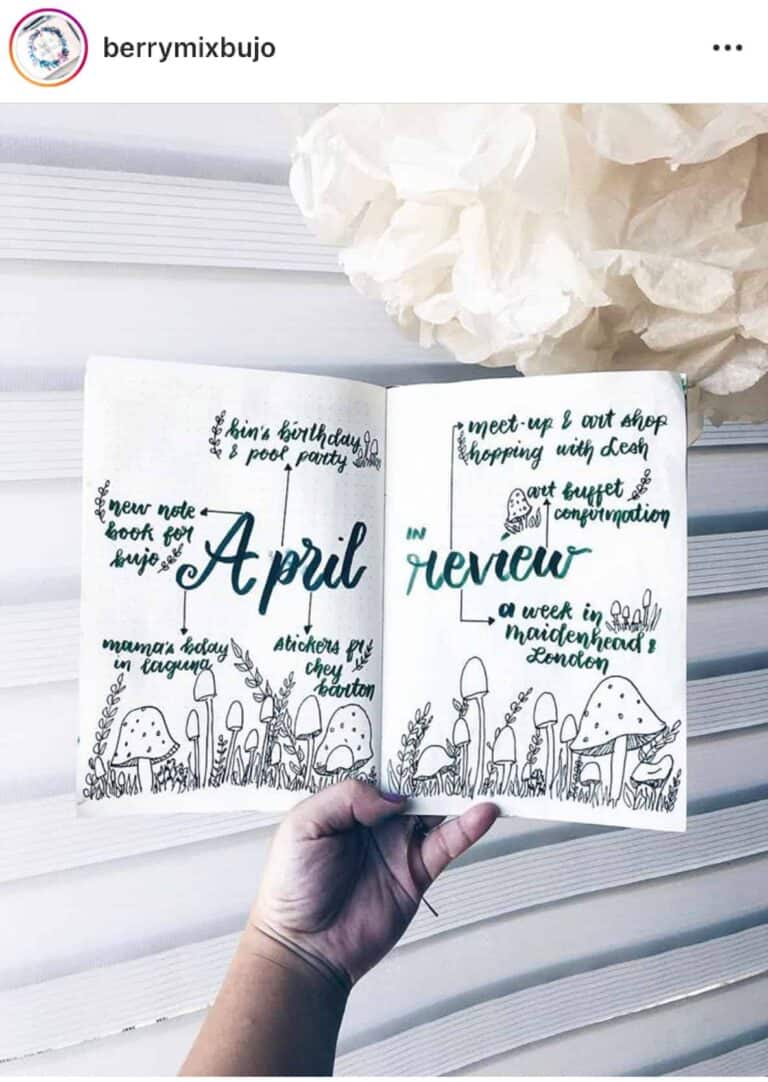 berrymixbujo
bin's birthday
& pool party
new note
book for
bujo
April
mama's bday
in laguna
stickers fr
chey
barton
meet-up & art shop
hopping with Leah
art buffet
confirmation
in
review
a week in
maidenhead &
London